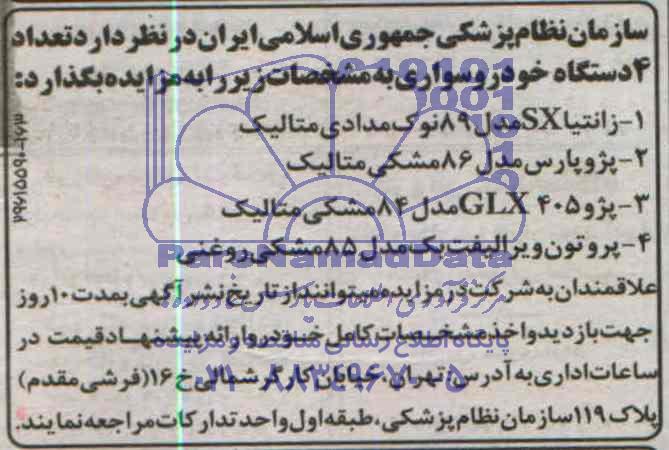 سازمان نظام پزشکی جمهوری اسلامی ایران در نظر دارد تعداد
۴دستگاه خودرو سواری به مشخصات زیر را به مزایده بگذارد:
۱-زانتیا SX مدل ۸۹ نوک مدادی متالیک
۲-پژو پارس مدل ۸۶ مشکی متالیک
۳-پژو ۴۰۵ GLX مدل ۸۴ مشکی متالیک
۴-پروتون ویرا لیفت بک مدل ۸۵ مشکی روغنی
علاقمندان به شرکت در مزایده میتوانند از تاریخ نشر آگهی بمدت ۱۰ روز
جهت بازدید و اخذ مشخصات کامل خودروها و ارائه پیشنهاد قیمت در
ساعات اداری به آدرس: تهران، خیابان کارگر شمالی خ ۱۶(فرشی مقدم)
پلاک ۱۱۹ سازمان نظام پزشکی، طبقه اول واحد تدارکات مراجعه نمایند.
ParsNamadData
پایگاه اطلاع رسانی مناقصه و مزایده
۰۲۱-۸۸۳۴۹۶۷۰-۵